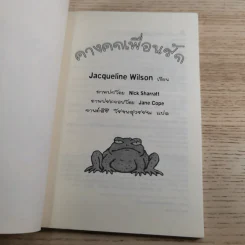 คางคกเพื่อนรัก
Jacqueline Wilson เขียน
ภาพปกโดย Nick Sharratt
ภาพประกอบโดย Jane Cope
แปล